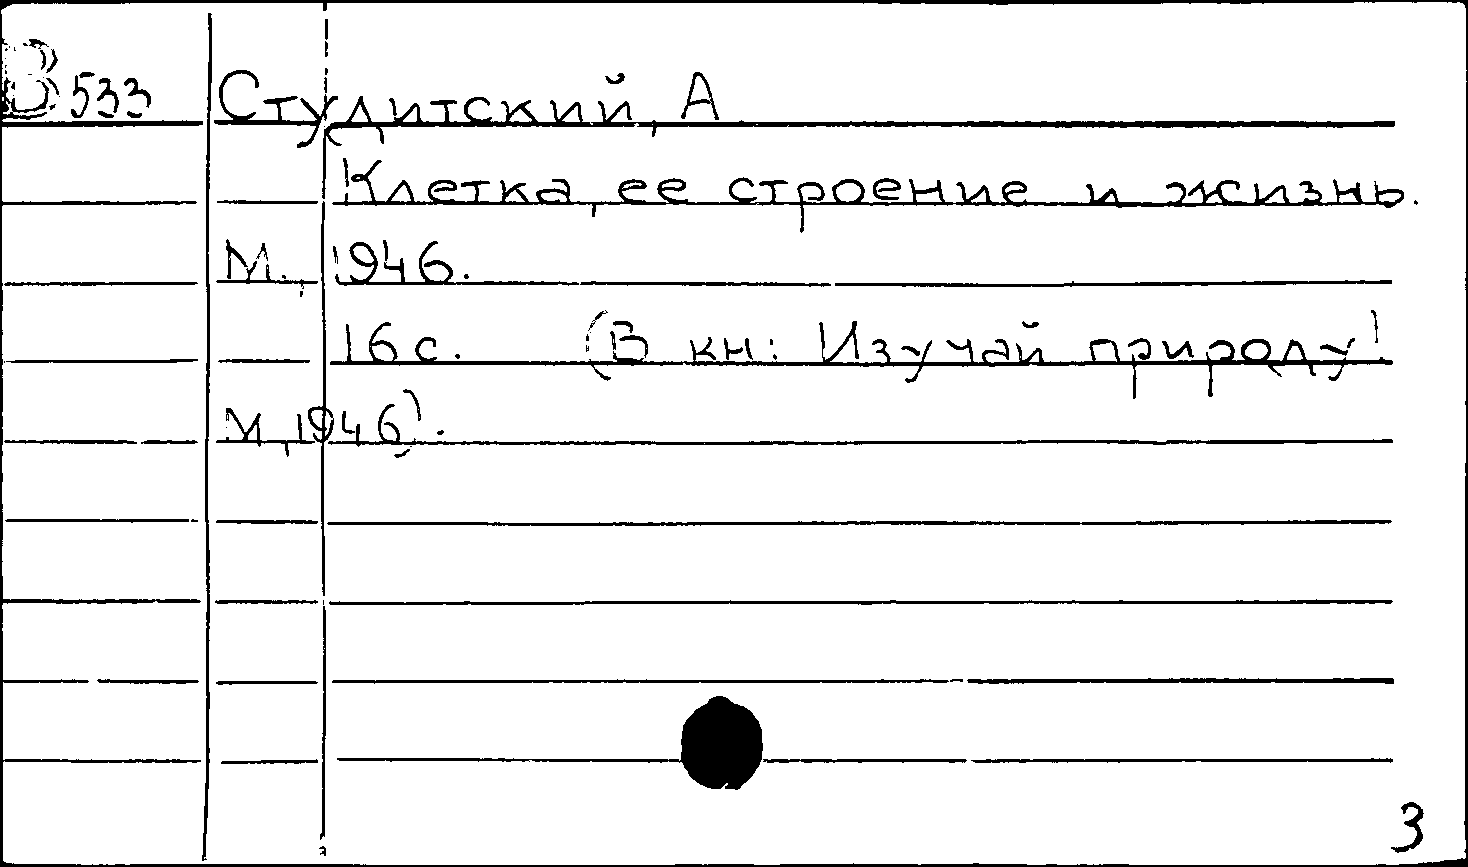 В 533 Студитский, А
Клетка, ее строение и жизнь.
М., 1946.
16 с. (В кн: Изучай природу!
М, 1946).
3